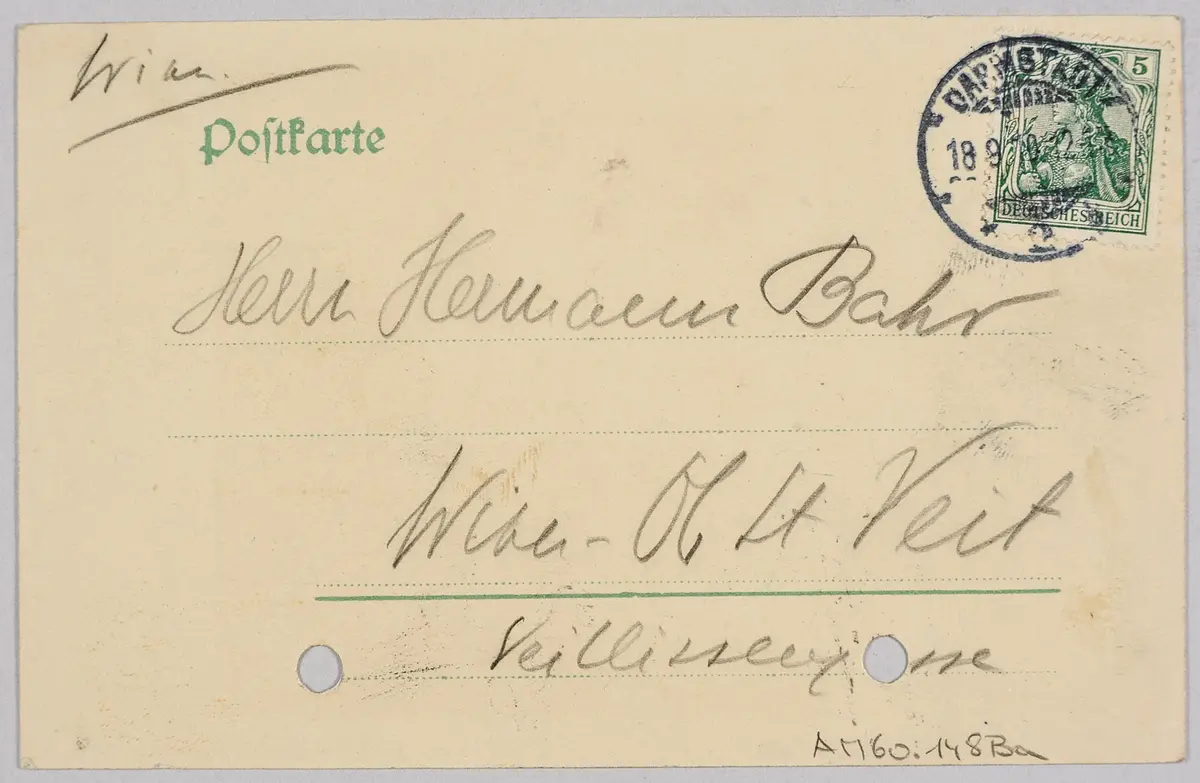 Wien.
Postkarte
5
DARMSTADT
18 9
DEUTSCHES REICH
2
Herrn Hermann Bahr
Wien - Ob St Veit
Veitlissengasse
AM60.148Ba